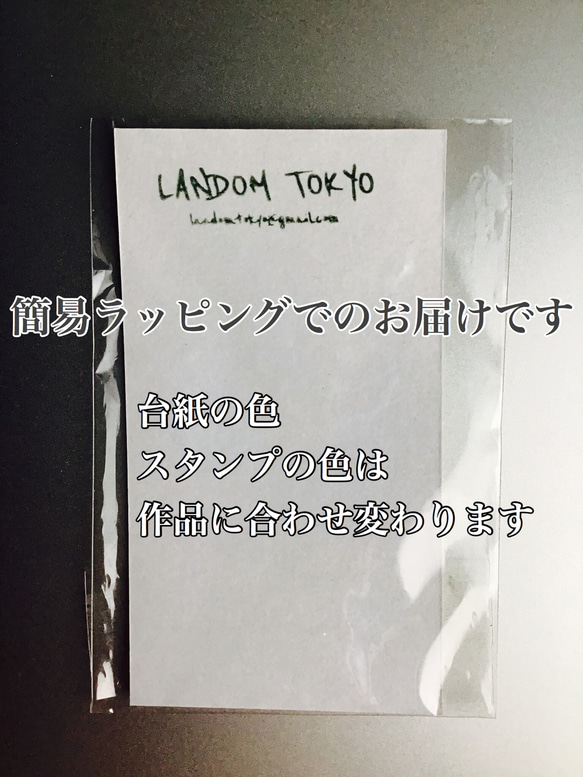 LANDOM TOKYO
landomtokyo@gmail.com
簡易ラッピングでのお届けです
台紙の色
スタンプの色は
作品に合わせ変わります